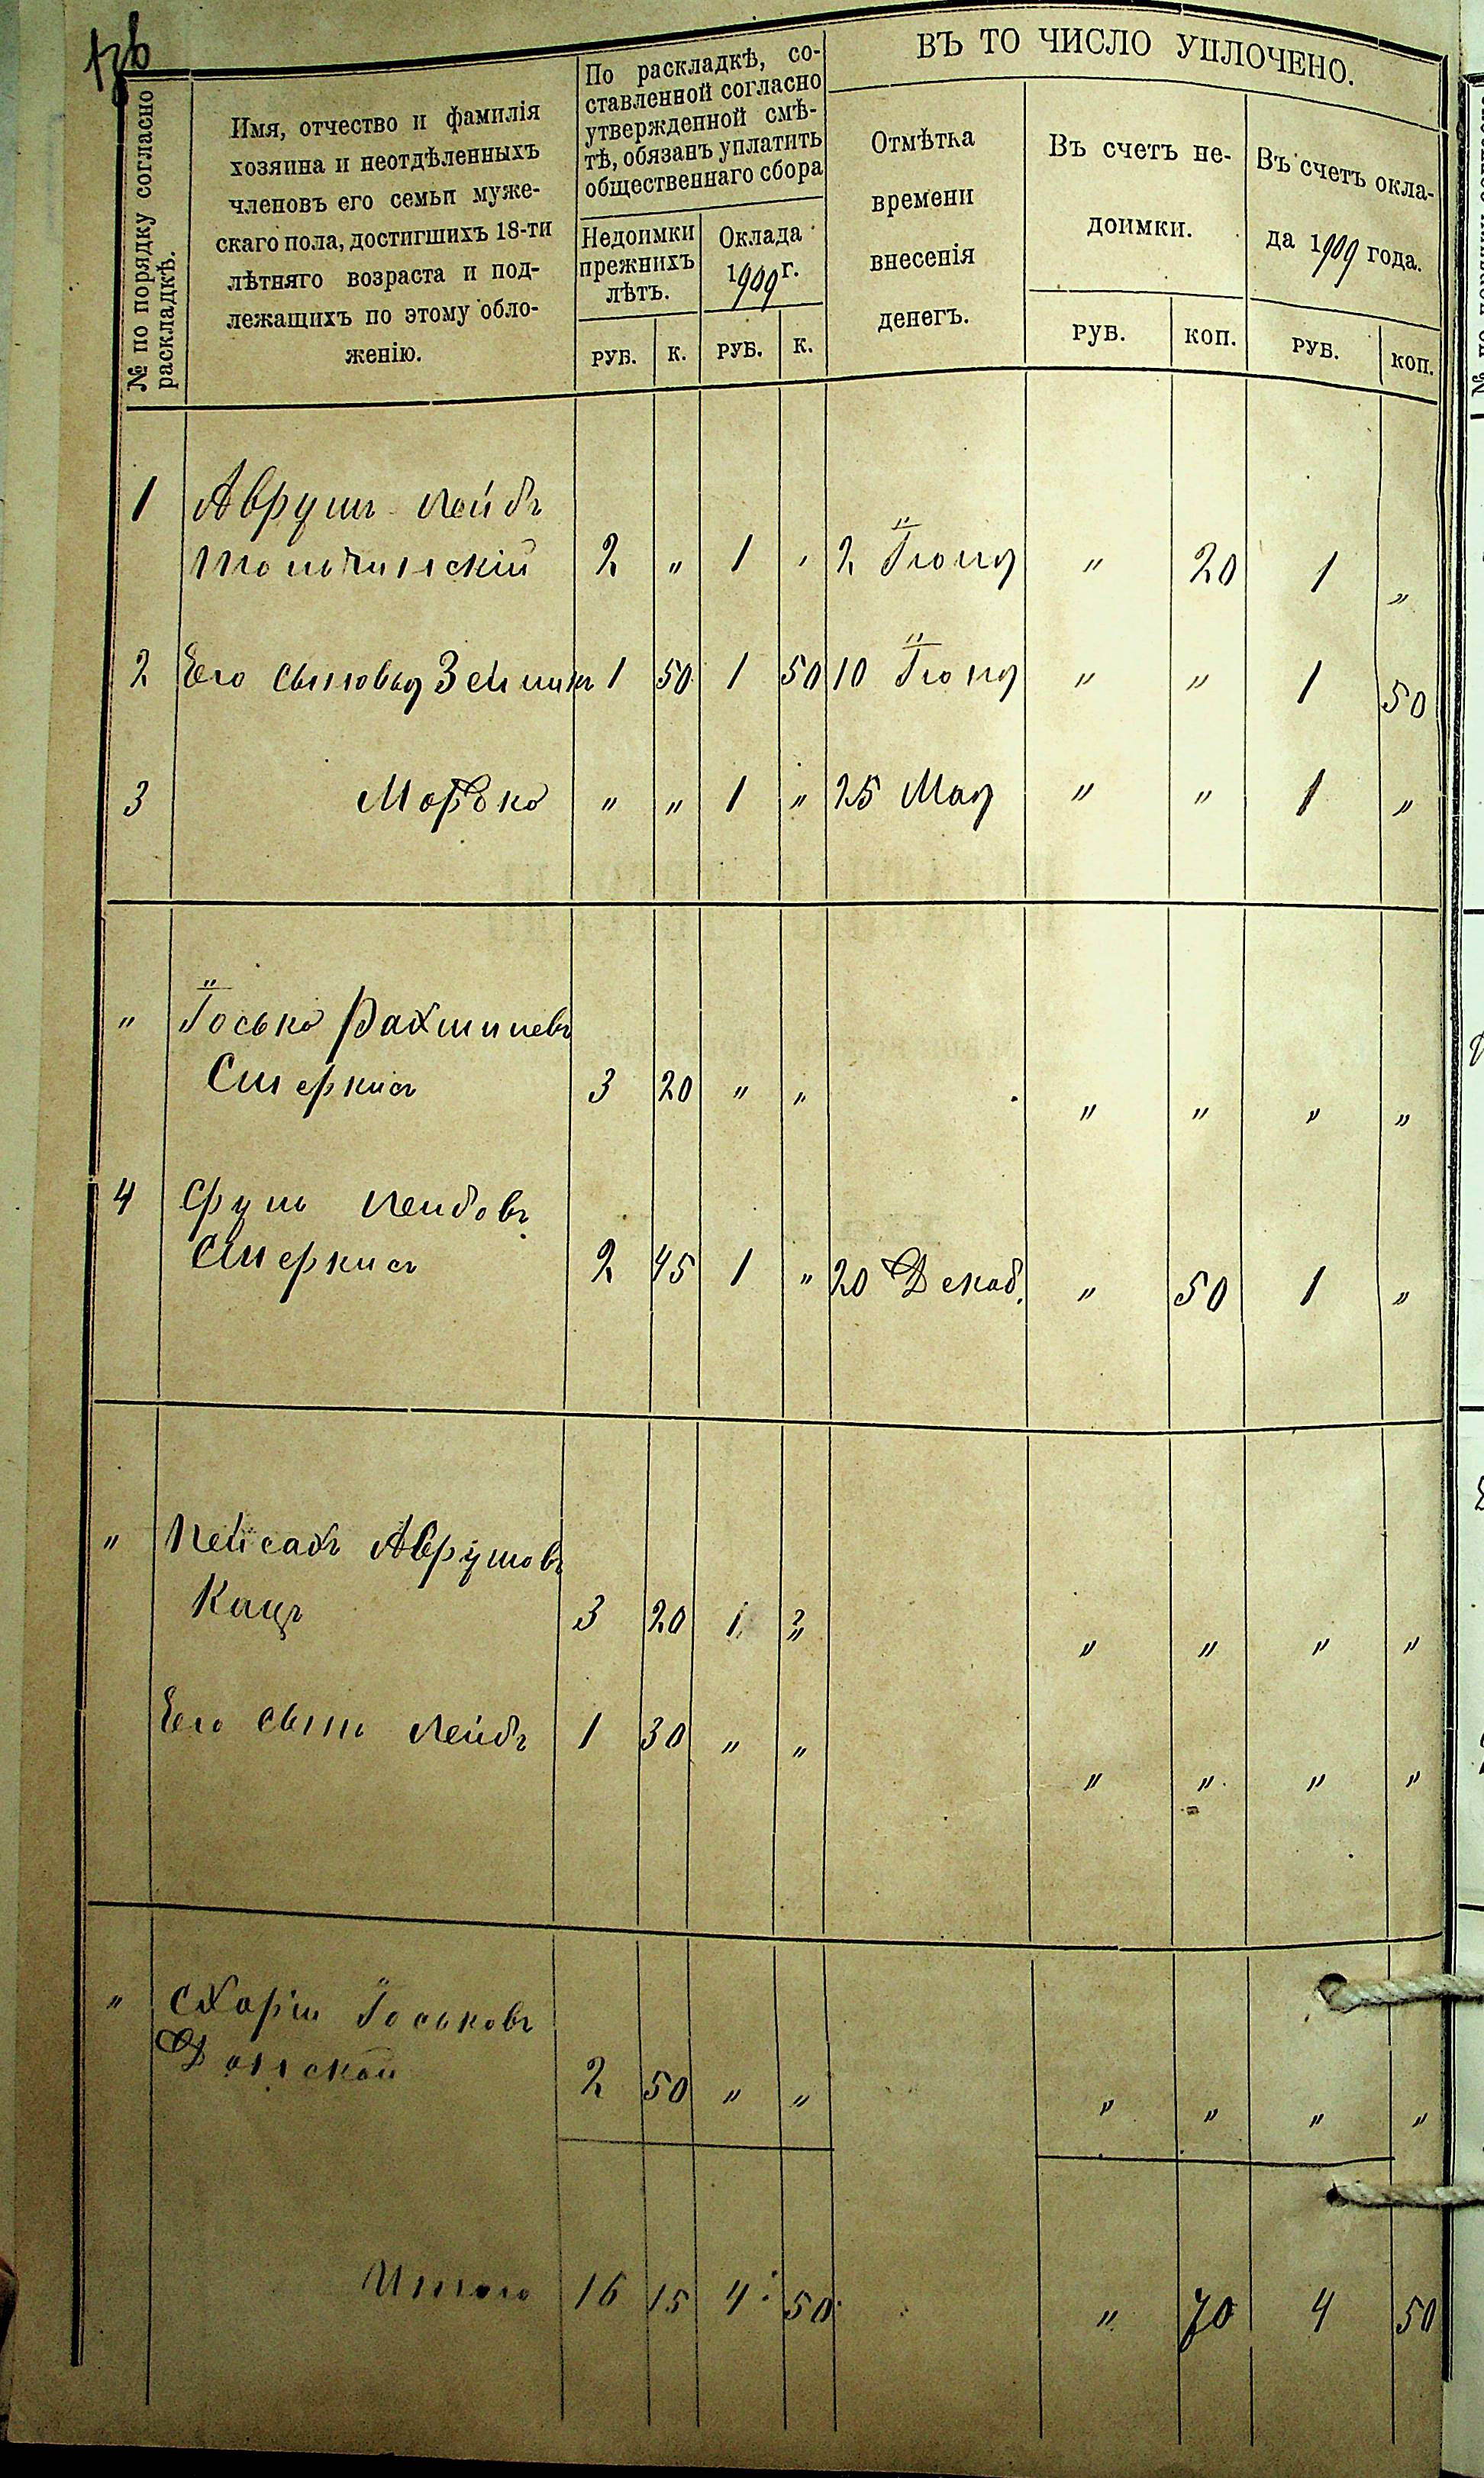 136
ВЪ ТО ЧИСЛО УПЛОЧЕНО.
№ по порядку согласно раскладкѣ.
Имя, отчество и фамилія
хозяина и неотдѣленныхъ
членовъ его семьи муже-
скаго пола, достигшихъ 18-ти
лѣтняго возраста и под-
лежащихъ по этому обло-
женію.
По раскладкѣ, со-
ставленной согласно
утвержденной смѣ-
тѣ, обязанъ уплатить
общественнаго сбора
Недоимки
прежнихъ
лѣтъ.
Оклада
1909 г.
Отмѣтка
времени
внесенія
денегъ.
Въ счетъ не-
доимки.
Въ счетъ окла-
да 1909 года.
РУБ. К. РУБ. К. РУБ. КОП. РУБ. КОП.
1 Аврумъ Лейбъ
2 „ 1 „ 2 Іюня „ 20 1 „
2 Его сыновья Зельманъ 1 50 1 50 10 Іюня „ „ 1 50
3 Мордко „ „ 1 „ 25 Мая „ „ 1 „
„ Іосько Рахмилевъ
Смеркисъ 3 20 „ „ „ „ „ „
4 Срулъ Лейбовъ
Смеркисъ 2 45 1 „ 20 Декаб. „ 50 1 „
„ Пейсахъ Аврумовъ
Кацъ 3 20 1 „ „ „ „ „
Его сынъ Лейбъ 1 30 „ „ „ „ „ „
„ Схарія Іоськовъ
Донской 2 50 „ „ „ „ „ „
Итого 16 15 4 50 „ 70 4 50